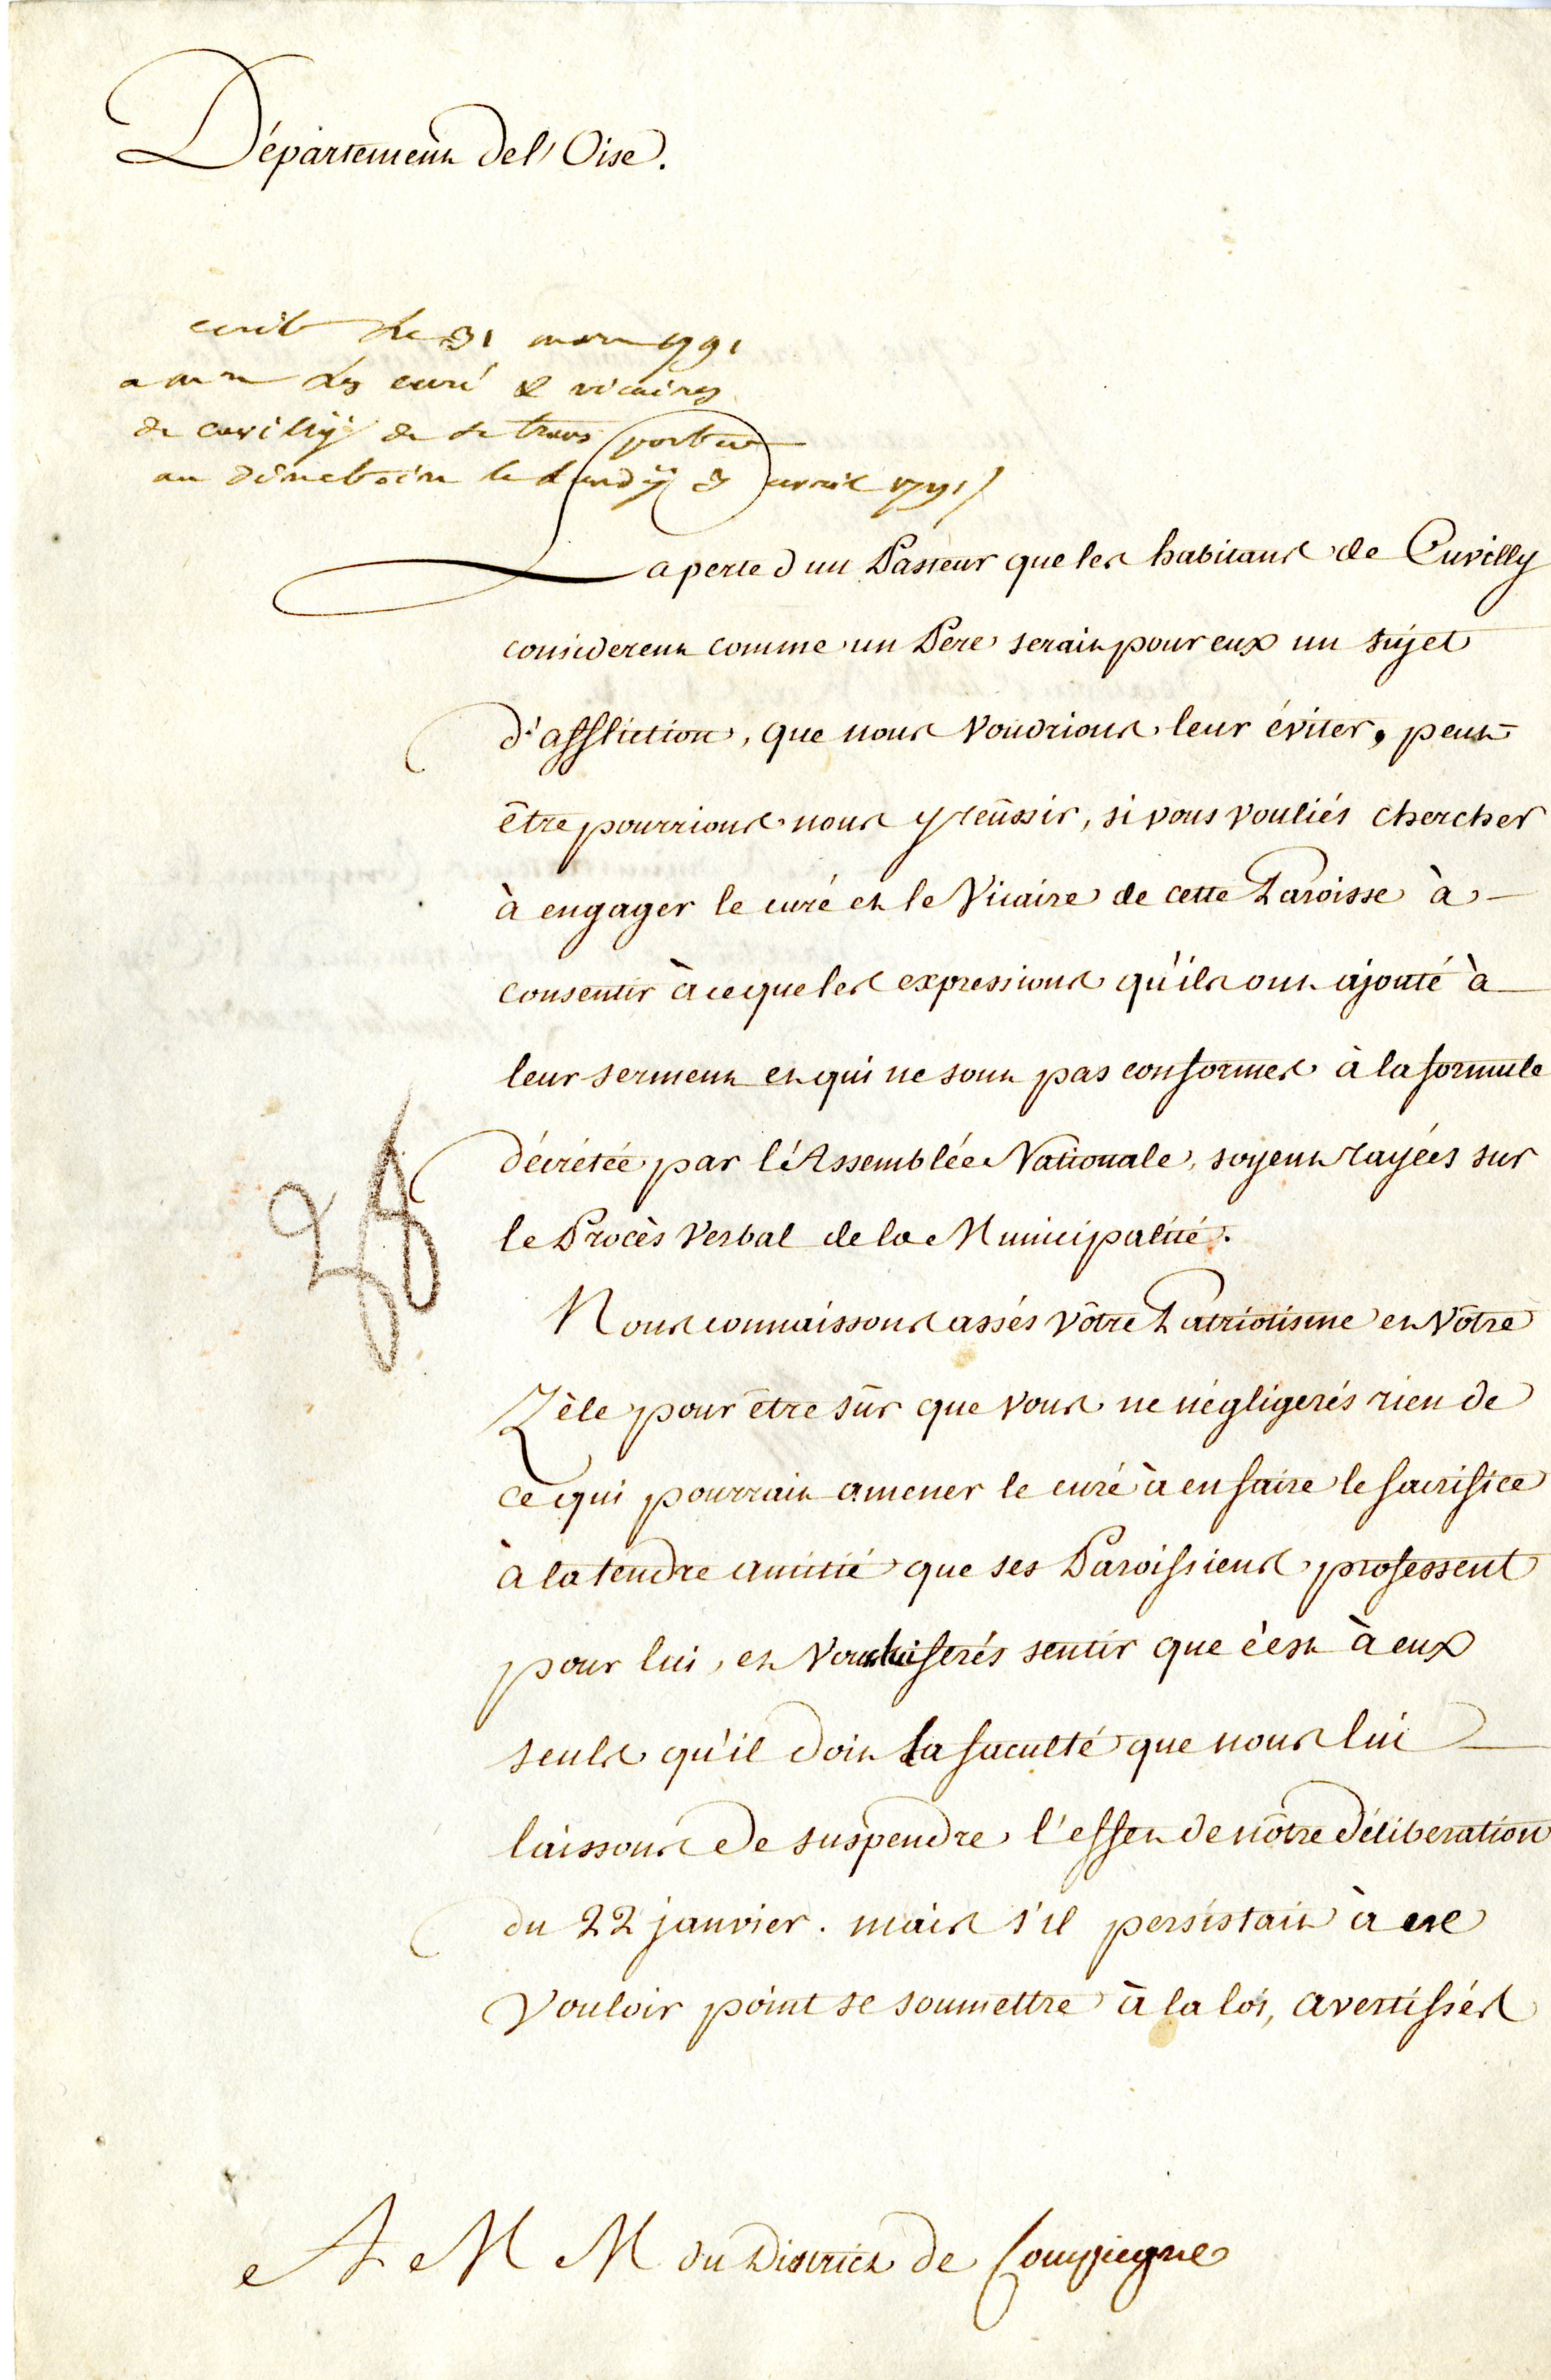 Département de l'Oise.
écrit le 31 mars 1791
a mrs les curé & vicaires
de cuvilly de se transporter
au directoire le lundy 3 avril 1791
La perte d'un Pasteur que les habitans de Cuvilly
considerent comme un Pere serait pour eux un sujet
d'affliction, que nous voudrions leur éviter, peut
être pourrions nous y reüssir, si vous vouliés chercher
à engager le curé et le Vicaire de cette Paroisse à
consentir à ce que les expressions qu'ils ont ajouté à
leur serment et qui ne sont pas conformes à la formule
décrétée par l'Assemblée Nationale, soyent rayées sur
le Procès Verbal de la Municipalité.
Nous connaissons assés vôtre Patriotisme et Vôtre
Zèle pour être sûr que vous ne négligerés rien de
ce qui pourrait amener le curé à en faire le sacrifice
à la tendre amitié que ses Paroissiens professent
pour lui, et Vous lui ferés sentir que c'est à eux
seuls qu'il doit la faculté que nous lui
laissons de suspendre l'effet de nôtre déliberation
du 22 janvier. mais s'il persistait à ne
vouloir point se soumettre à la loi, avertissés
A M M du District de Compiegne